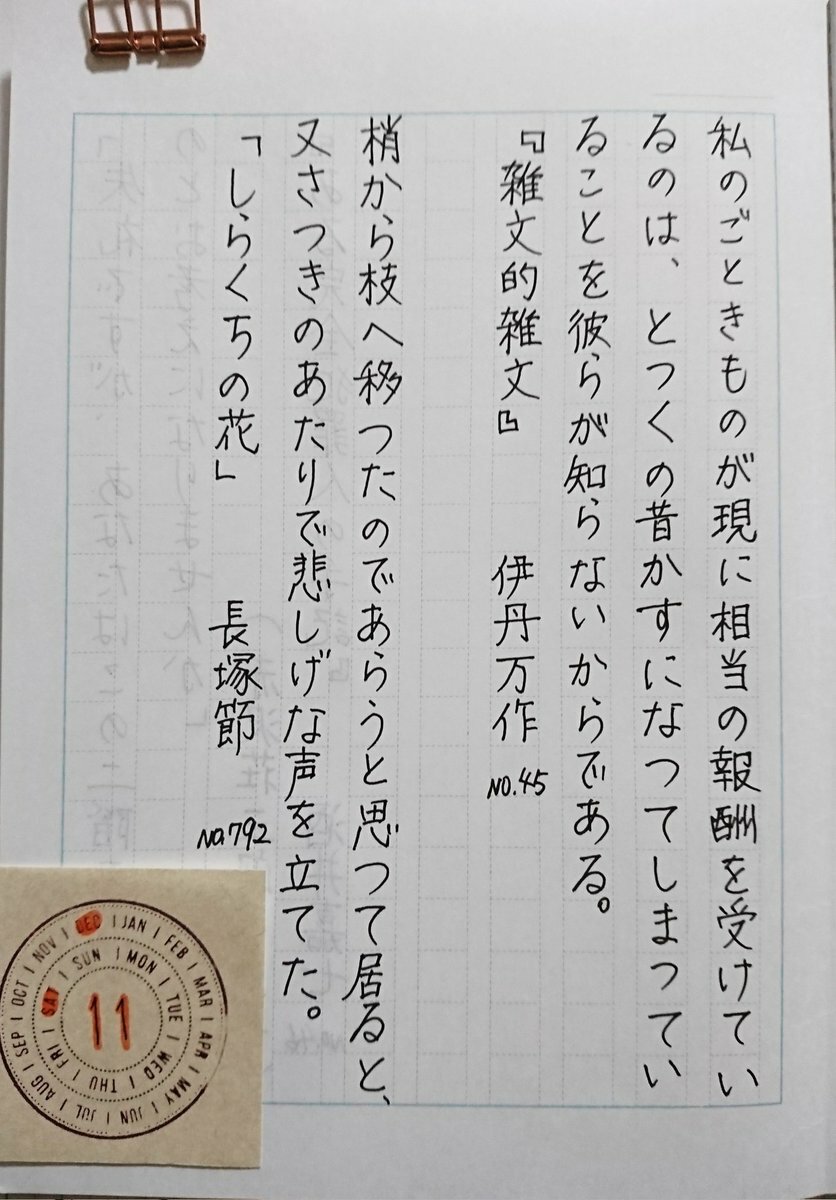 私のごときものが現に相当の報酬を受けてい
るのは、とつくの昔かすになつてしまつてい
ることを彼らが知らないからである。
『雑文的雑文』 伊丹万作 NO.45
梢から枝へ移つたのであらうと思つて居ると、
又さつきのあたりで悲しげな声を立てた。
「しらくちの花」 長塚節 No.792
JAN FEB MAR APR MAY JUN JUL AUG SEP OCT NOV DEC
SUN MON TUE WED THU FRI SAT
11